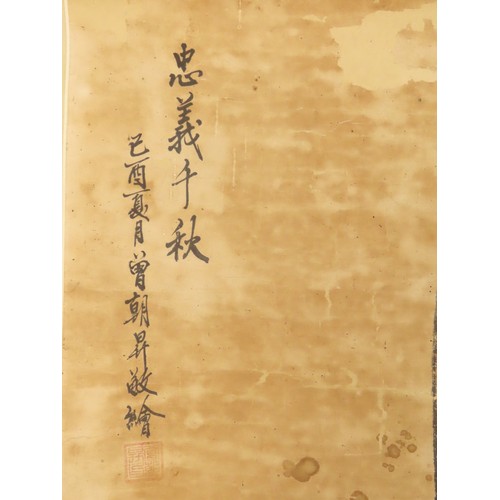 忠義千秋
己酉夏月曾朝昇敬繪